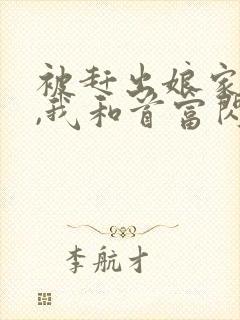 被赶出娘家
,我和首富闪
李航才